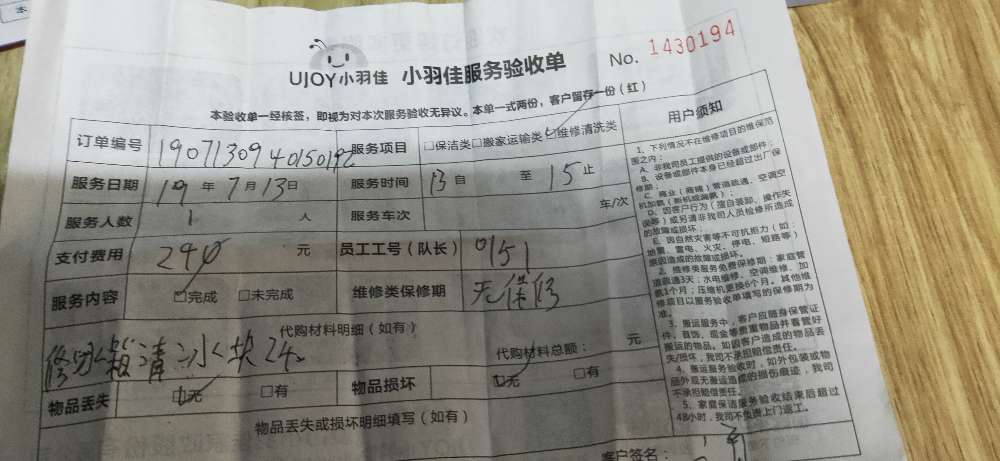 UJOY小羽佳 小羽佳服务验收单 No. 1430194
本验收单一经核签，即视为对本次服务验收无异议。本单一式两份，客户留存一份（红）
订单编号 服务项目 □保洁类□搬家运输类☑维修清洗类
服务日期 19年7月13日 服务时间 13自 至15止
服务人数 1人 服务车次 车/次
支付费用 240元 员工工号（队长） 0151
服务内容 ☑完成 □未完成 维修类保修期 无保修
代购材料明细（如有） 代购材料总额： 元
物品丢失 ☑无 □有 物品损坏 ☑无 □有
物品丢失或损坏明细填写（如有）
客户签名：
用户须知
1、下列情况不在维修项目的维保范
围之内：
A、非我司员工提供的设备或部件；
B、设备或部件本身已经超过出厂保
修期；
C、商业（商铺）管道疏通、空调空
D、因客户行为（擅自装卸、操作失
误等）或另请非我司人员检修所造成
的故障或损坏；
E、因自然灾害等不可抗拒力（如：
地震、雷电、火灾、停电、短路等）
原因造成的故障或损坏。
2、维修类服务免费保修期：家庭管
道疏通3天；水电维修、空调维修、加
氨1个月；压缩机更换6个月。其他维
修项目以服务验收单填写的保修期为
准。
3、搬运服务中，客户应随身保管证
件、首饰、现金等贵重物品并看管好
搬运的物品。如因客户造成的物品丢
失/损坏，我司不承担赔偿责任。
4、搬运服务验收时，如外包装或物
品外观无搬运造成的损伤痕迹，我司
不承担赔偿责任。
5、家庭保洁服务验收结束后超过
48小时，我司不负责上门返工。